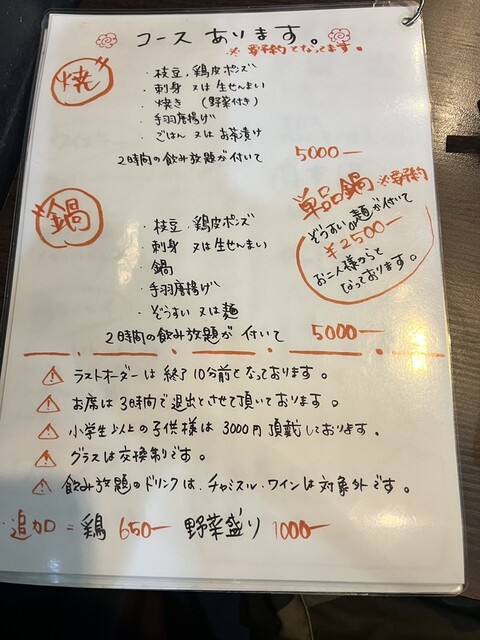 コースあります。
※要予約となってます。
焼
・枝豆、鶏皮ポンズ
・刺身 又は 生せんまい
・焼き (野菜付き)
・手羽唐揚げ
・ごはん 又は お茶漬け
2時間の飲み放題が付いて 5000ー
鍋
・枝豆、鶏皮ポンズ
・刺身 又は 生せんまい
・鍋
・手羽唐揚げ
・ぞうすい 又は 麺
2時間の飲み放題が 付いて 5000ー
単品鍋 ※要予約
ぞうすいor麺が付いて
¥2500ー
お二人様からと
なっております。
ラストオーダーは終了10分前となっております。
お席は3時間で退出とさせて頂いております。
小学生以上の子供様は3000円頂戴しております。
グラスは交換制です。
飲み放題のドリンクは、チャミスル・ワインは対象外です。
追加=鶏 650ー 野菜盛り 1000ー